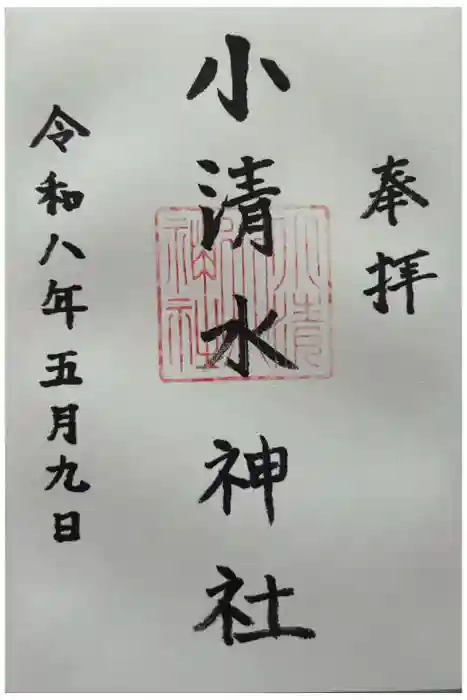 奉拝
小清水神社
小清水神社
令和八年五月九日